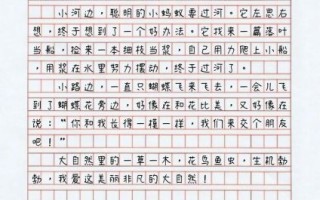 小河边，聪明的小蚂蚁要过河。它左思右
想，终于想到了一个好办法。它找来一篇落叶
当船，捡来一本细枝当桨，自己用力爬上小船
，用桨在水里努力摆动，终于过河了。
小路边，一直只蝴蝶飞来飞去，一会儿飞
到了蝴蝶花旁边，好像在和花比美，又好像在
说：“你和我长得一撞一样，我们来交个朋友
吧！”
大自然里的一草一木，花鸟鱼虫，生机勃
勃，我爱这美丽非凡的大自然！